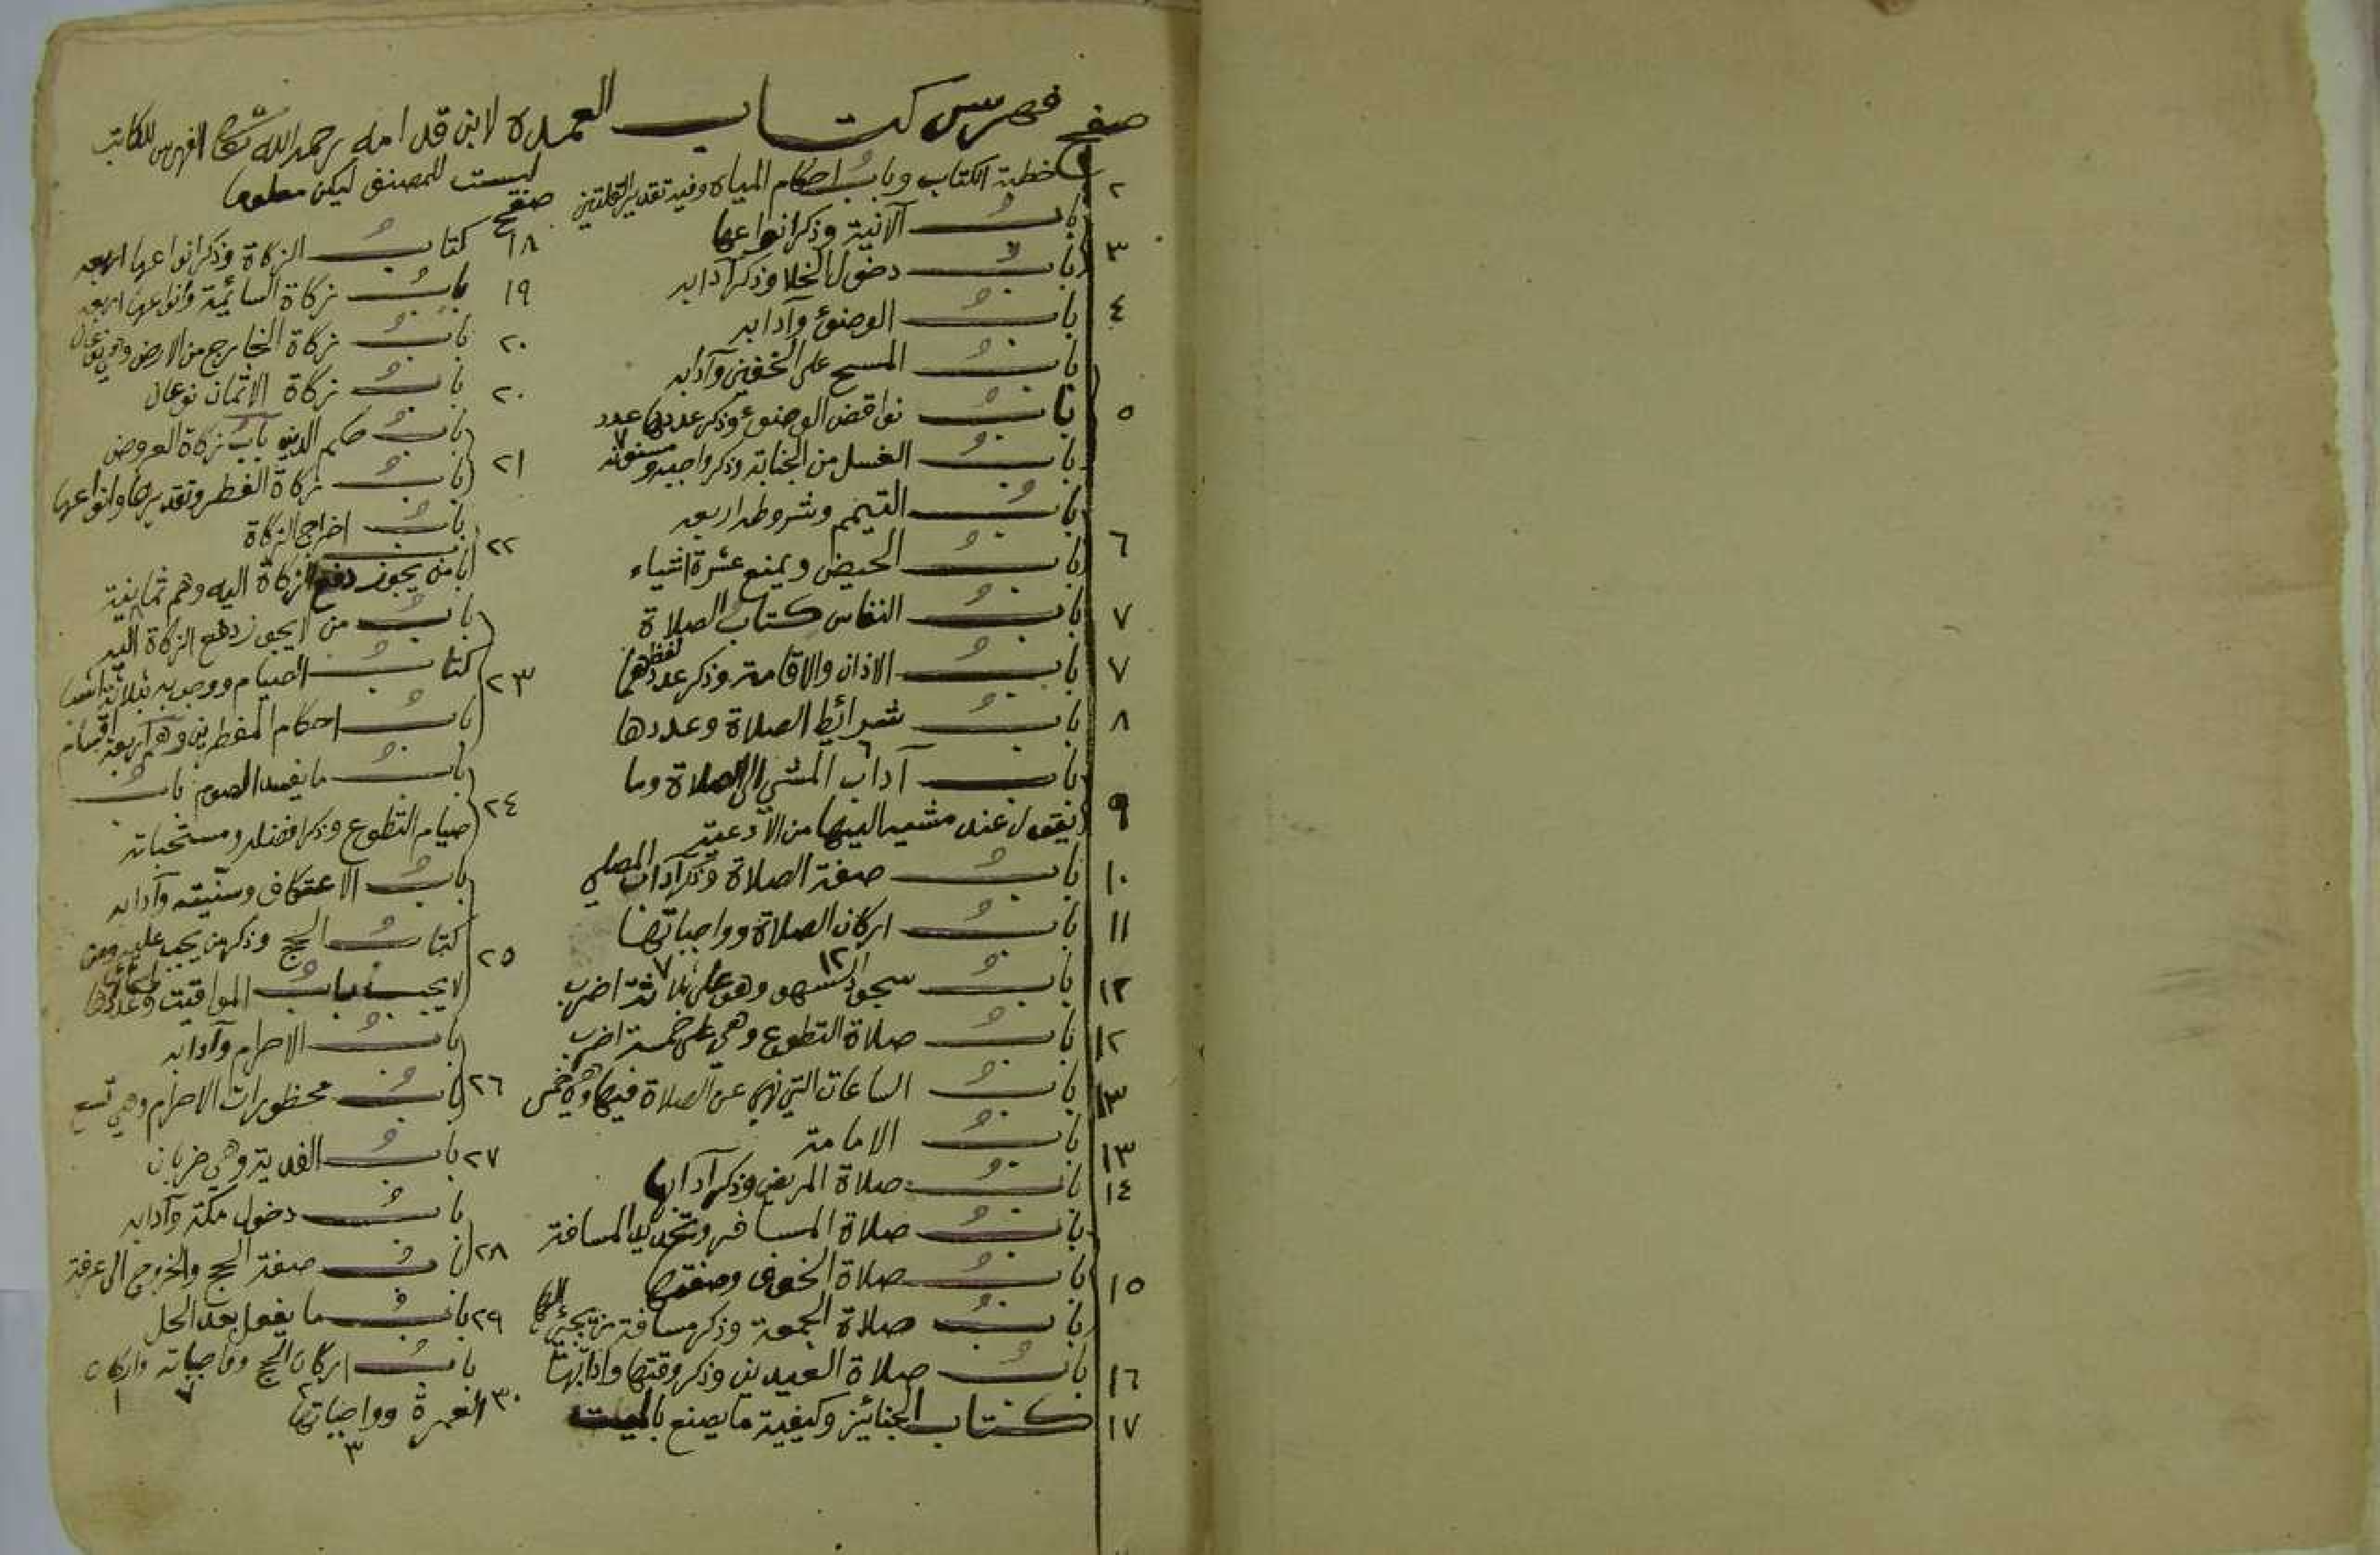 صفح فهرس كتاب العمدة لابن قدامه رحمه الله تعالى الفهرس للكاتب
ليست للمصنف ليكن معلوما
٢ خطبة الكتاب وباب احكام المياه وفيه تقدير القلتين
باب الآنية وذكر انواعها
٣ باب دخول الخلا وذكر آدابه
٤ باب الوضوء وآدابه
باب المسح على الخفين وآدابه
٥ باب نواقض الوضوء وذكر عددها عدد ٧
باب الغسل من الجنابة وذكر واجبه ومسنونه
باب التيمم وشروطه اربعه
٦ باب الحيض ويمنع عشرة اشياء
٧ باب النفاس كتاب الصلاة
٧ باب الاذان والاقامة وذكر عدد لفظهما
٨ باب شرائط الصلاة وعددها ٦
باب آداب المشي الى الصلاة وما
٩ يقول عند مشيه اليها من الأدعية
١٠ باب صفة الصلاة وذكر آداب المصلي
١١ باب اركان الصلاة وواجباتها ١٢ ٧
١٢ باب سجود السهو وهو على ثلاثة اضرب
١٢ باب صلاة التطوع وهي على خمسة اضرب
١٣ باب الساعات التي نهي عن الصلاة فيها وهي خمس
١٣ باب الامامة
١٤ باب صلاة المريض وذكر آدابها
باب صلاة المسافر وتحديد المسافة
١٥ باب صلاة الخوف وصفتها
باب صلاة الجمعة وذكر مسافة من يجيئ اليها
١٦ باب صلاة العيدين وذكر وقتها وادابها
١٧ كتاب الجنائز وكيفية ما يصنع بالميت
صفح
١٨ كتاب الزكاة وذكر انواعها اربعه
١٩ باب زكاة السائمة وانواعها اربعه
٢٠ باب زكاة الخارج من الارض وهي نوعان
٢٠ باب زكاة الاثمان نوعان
باب حكم الدين باب زكاة العروض
٢١ باب زكاة الفطر وتقديرها وانواعها
باب اخراج الزكاة
٢٢ باب من يجوز دفع الزكاة اليه وهم ثمانية
باب من لا يجوز دفع الزكاة اليه
٢٣ كتاب الصيام ووجوبه بثلاثة اشيا
باب احكام المفطرين وهم اربعة اقسام
باب ما يفسد الصوم باب
٢٤ صيام التطوع وذكر افضله ومستحباته
باب الاعتكاف وسنيته وآدابه
٢٥ كتاب الحج وذكر من يجب عليه ومن
لا يجب باب المواقيت وعددها
باب الاحرام وآدابه
٢٦ باب محظورات الاحرام وهي تسع
٢٧ باب الفدية وهي ضربان
باب دخول مكة وآدابه
٢٨ باب صفة الحج والخروج الى عرفة
٢٩ باب ما يفعل بعد الحل
باب اركان الحج وواجباته واركان
٣٠ العمرة وواجباتها